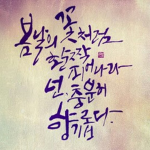 봄날의 꽃처럼
피어나라
넌, 충분히
향기롭다.